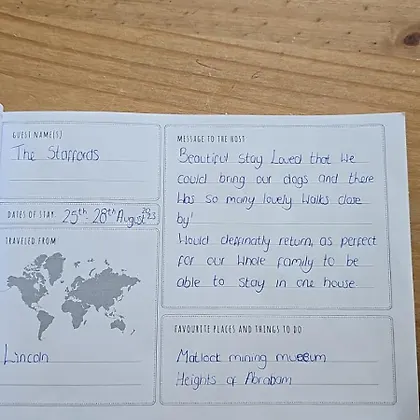 GUEST NAME(S)
The Staffords
DATES OF STAY 25th - 28th August 2023
TRAVELED FROM
Lincoln
MESSAGE TO THE HOST
Beautiful stay Loved that We
could bring our dogs and there
Was so many lovely Walks close
by!
Would deffinatly return, as perfect
for our Whole family to be
able to stay in one house
FAVOURITE PLACES AND THINGS TO DO
Matlock mining museum
Heights of Abraham